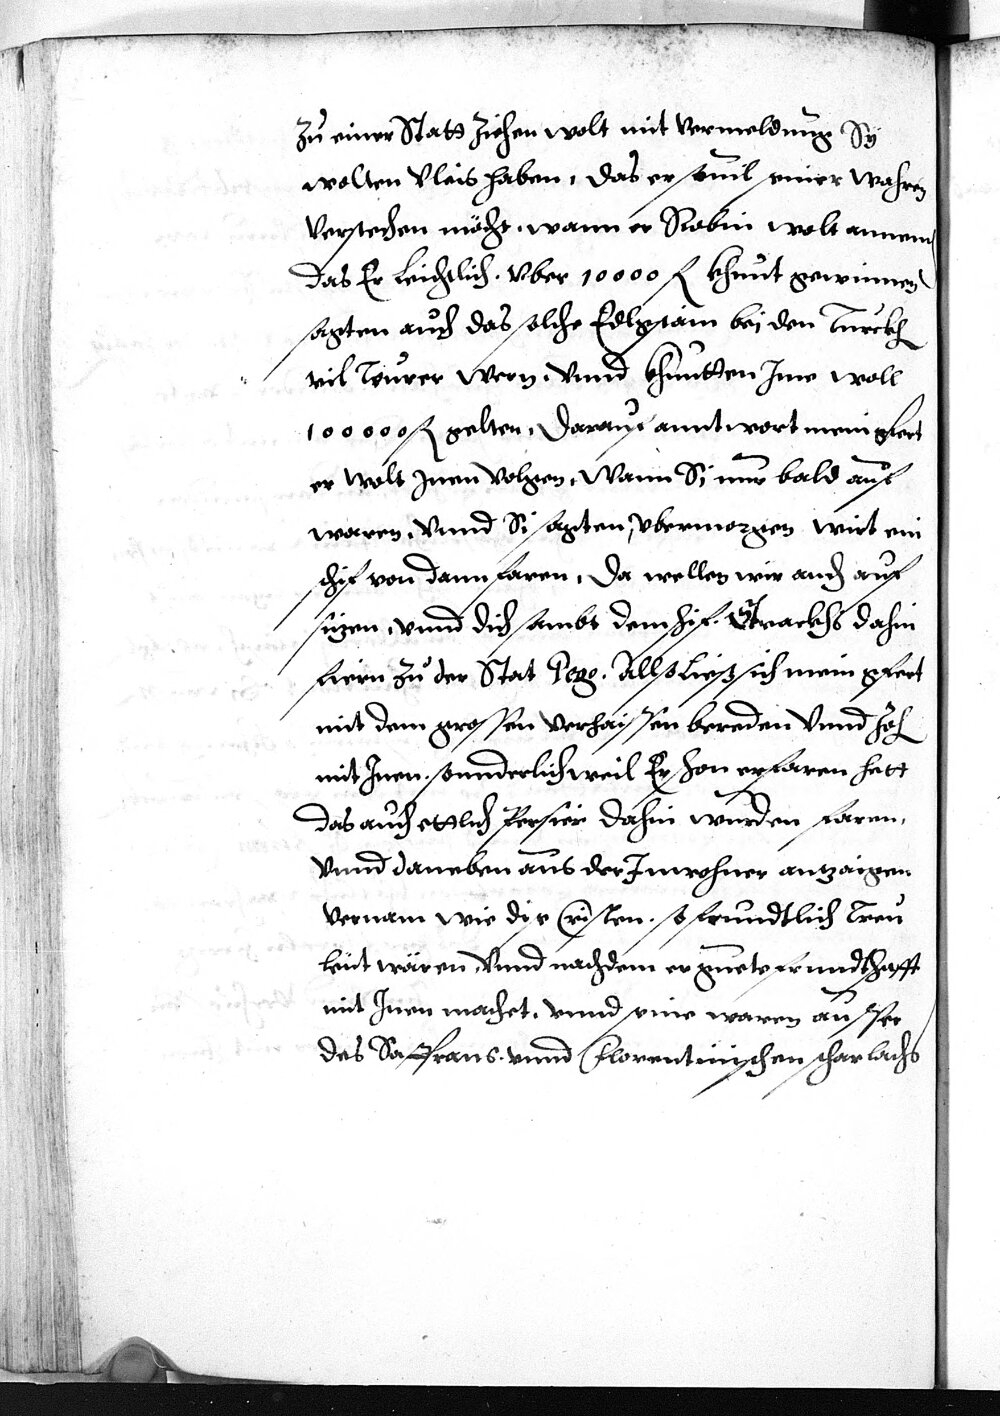 zu einer Statt ziehen wolt mit vermeldung Sÿ
wolten vleis haben, das er souil seiner wahren
verstechen möcht, wann er Robin wolt annemen
das Er leichtlich vber 10000 fl khunt gewinnen
sagten auch das solche Edlgstain bej den Turckh
vil Teurer wern, vnnd khuntten Ime woll
100000 fl gelten, darauf anntwort mein gfert
er wolt Inen volgen, wann Si nur bald auf
waren, vnnd Si sagten, vbermorgen wirt ein
schif von dann faren, da wellen wir auch auf
sizen, vnnd dich sambt dem schif Strackhs dahin
fiern zu der Stat Pego. Allso liesz sich mein gfert
mit dem grossen verhaissen bereden vnnd zoh
mit Inen, sonnderlich weil Er schon erfaren hett
das auch ettlich Persier dahin wurden faren,
vnnd daneben aus der Inwohner antzaigen
vernam wie dise Cristen so freundtlich Treu
leüt wären, vnnd nachdem er guete freundtschafft
mit Inen machet, vnnd seine waren ausser
des Saffrans vnnd Florentinischen scharlachs